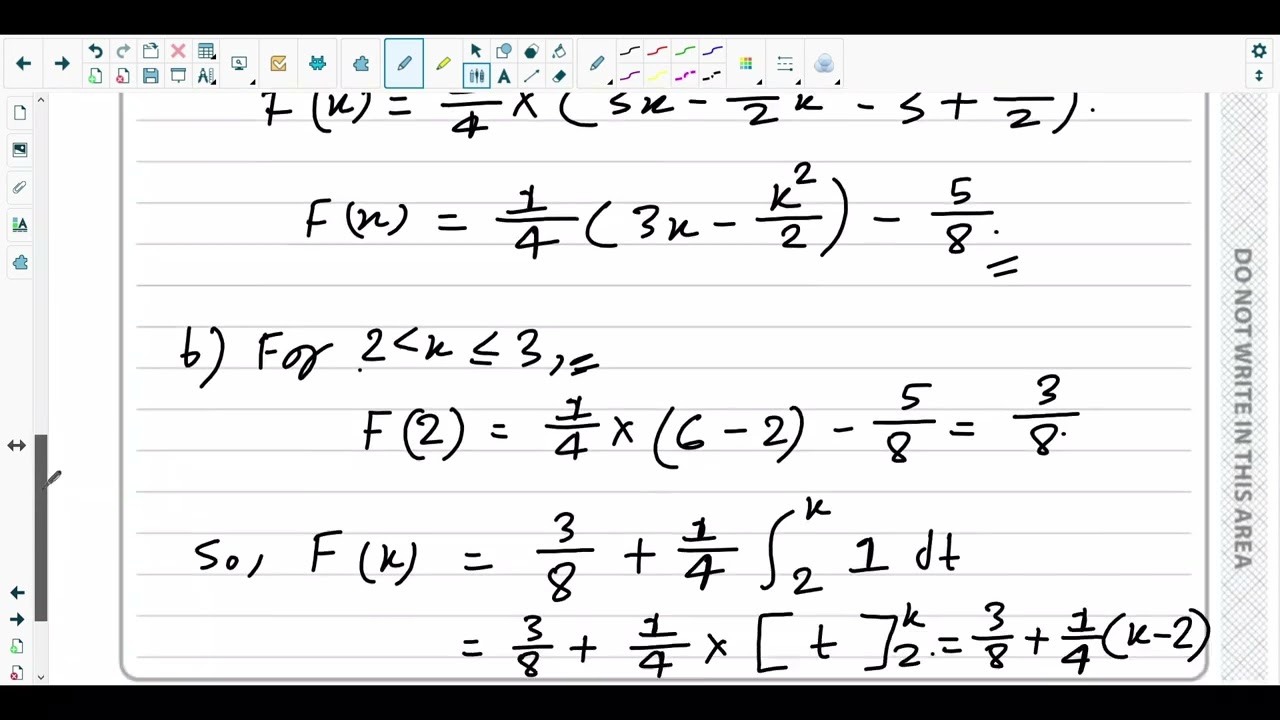 F(x) = 1/4 × (3x − x/2 − 3 + /2).
F(x) = 1/4 (3x − x²/2) − 5/8.
b) For 2 < x ≤ 3,
F(2) = 1/4 × (6 − 2) − 5/8 = 3/8.
So, F(x) = 3/8 + 1/4 ∫₂ˣ 1 dt
= 3/8 + 1/4 × [t]₂ˣ. = 3/8 + 1/4 (x − 2)
DO NOT WRITE IN THIS AREA